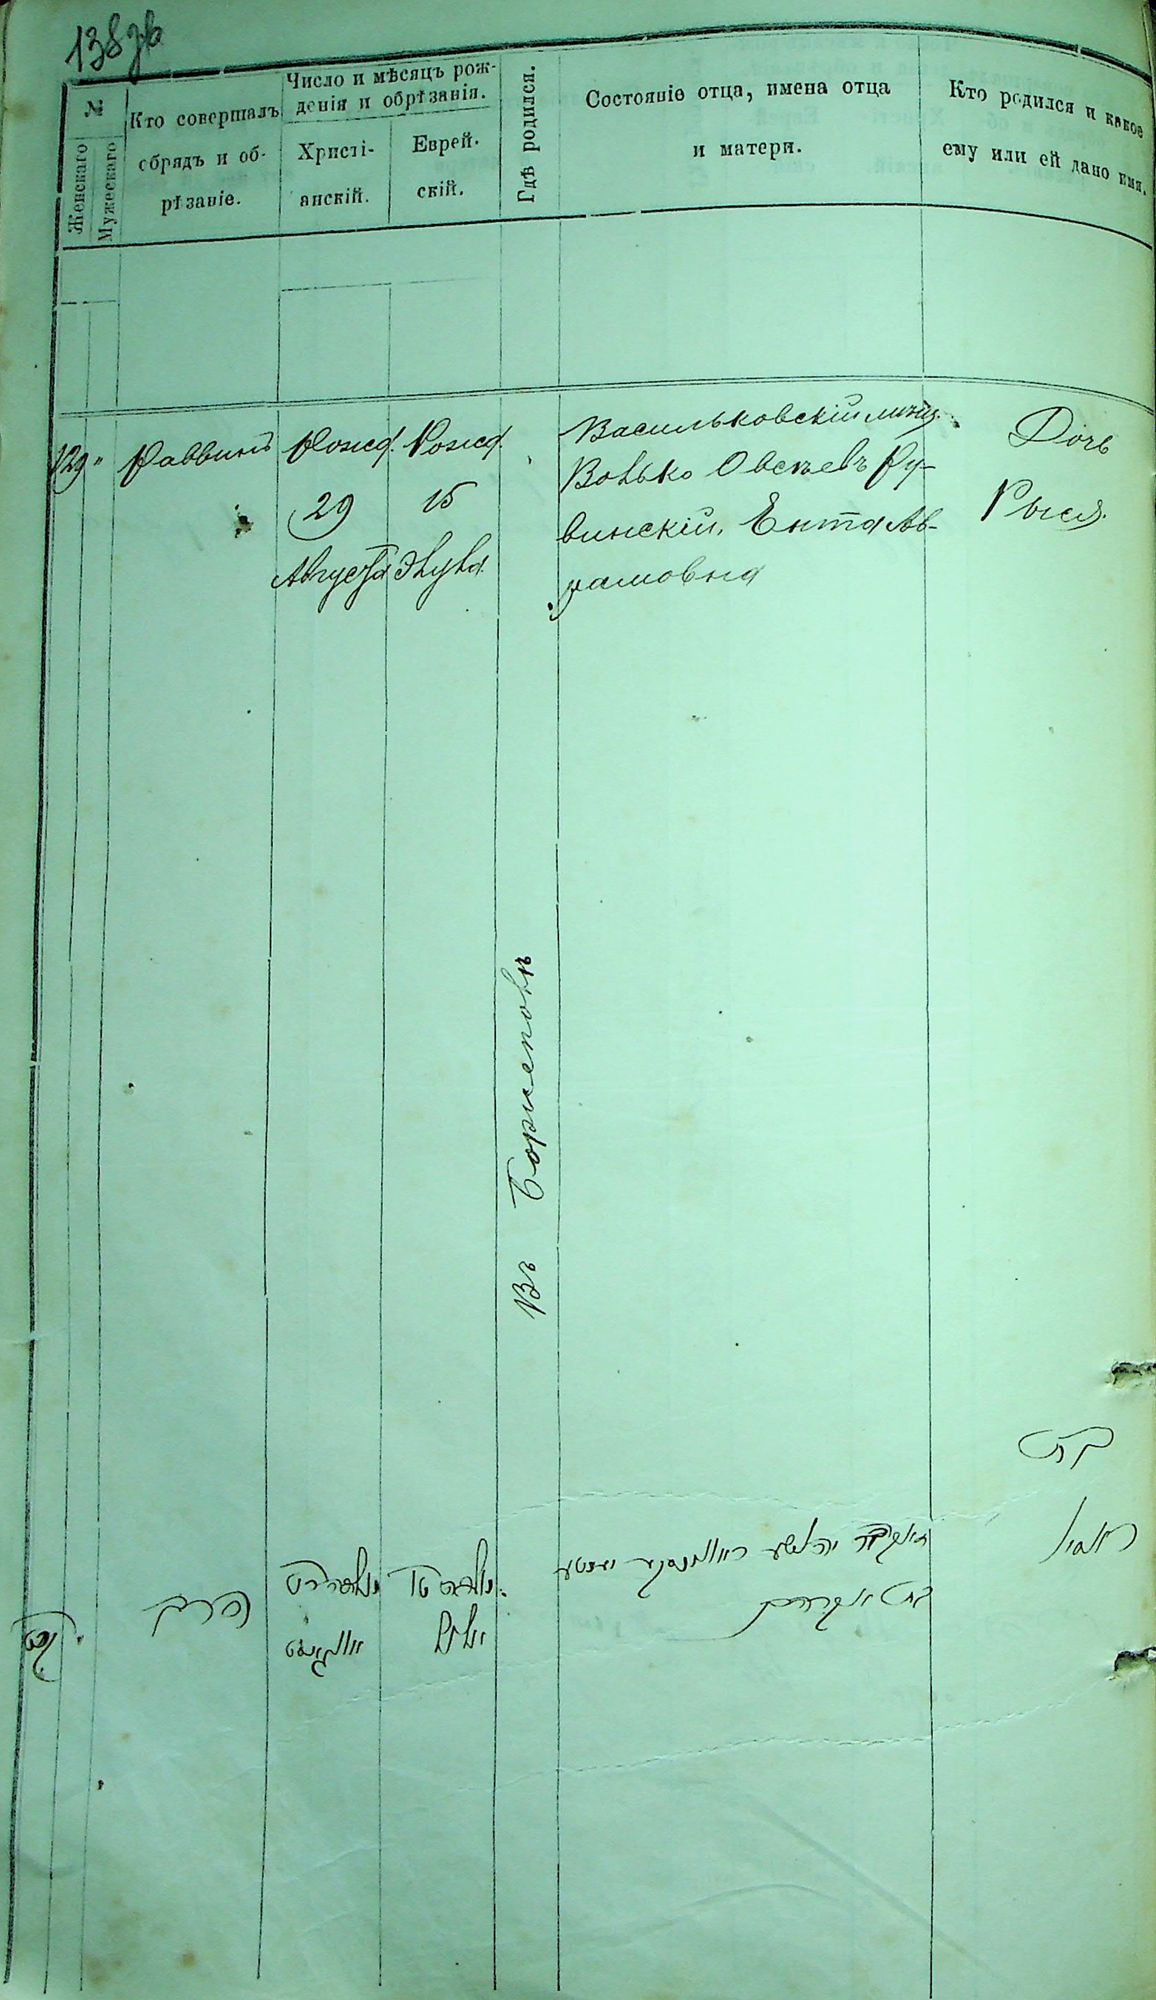 138 зв
№
Женскаго
Мужескаго
Кто совершалъ
обрядъ и об-
рѣзаніе.
Число и мѣсяцъ рож-
денія и обрѣзанія.
Христі-
анскій.
Еврей.
скій.
Гдѣ родился.
Состояніе отца, имена отца
и матери.
Кто родился и какое
ему или ей дано имя.
129 "
Раввинъ
Рожд.
29
Августа
Рожд.
15
Элула
Въ
Васильковскій мѣщ.
Волько Овсѣевъ Ру-
винскій, Ента Ав-
рамовна
Дочь
Рыся.
בת
קכט
הרב
אויגוסט
אלול
יענטע
בת אברהם